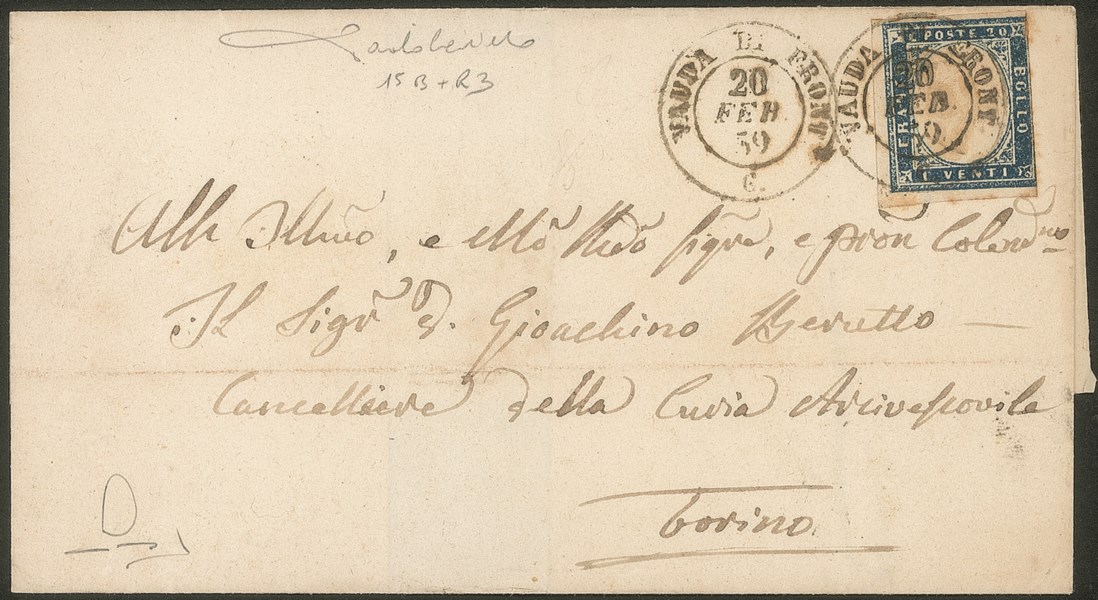 15 B + R3
VAUDA DI FRONT
20
FEB
59
C.
VAUDA DI FRONT
20
FEB
59
C. POSTE 20
BOLLO
FRA
VENTI
Alla Illmo, e M Rdo Sigre, e pron Colendmo
Il Sigr D. Gioachino Berutto
Cancelliere della Curia Arcivescovile
Torino